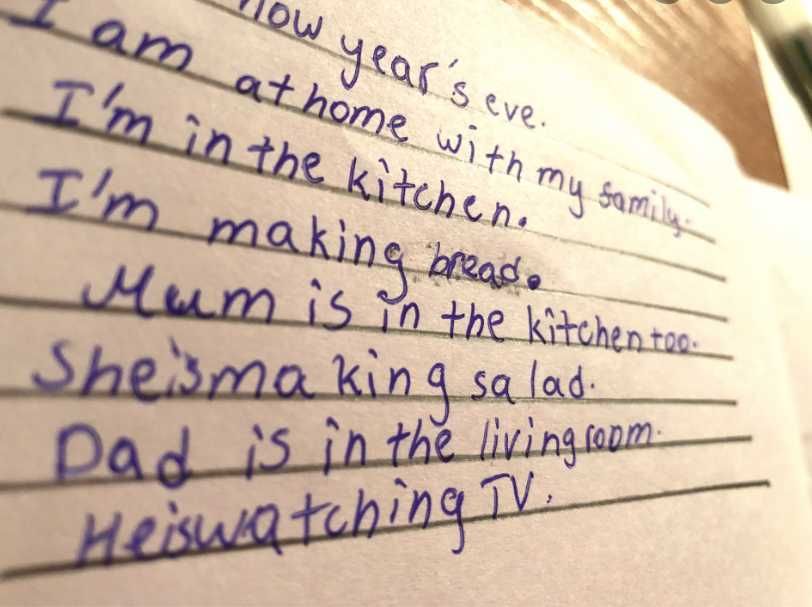 now year's eve.
I am at home with my family.
I'm in the kitchen.
I'm making bread.
Mum is in the kitchen too.
She's making salad.
Dad is in the living room.
He is watching TV.